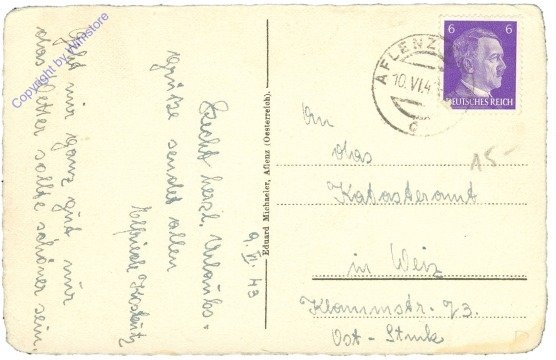 Copyright by Winistore
9. VI 43
Recht herzl. Urlaubs-
grüße sendet allen
Elfriede
Geht mir ganz gut nur
das Wetter sollte schöner sein
Eduard Michaeler, Aflenz (Oesterreich).
AFLENZ
10.VI.4
6 6
DEUTSCHES REICH
An
das
15-
Katasteramt
in Weiz
Klammstr. 73.
Ost-Stmk